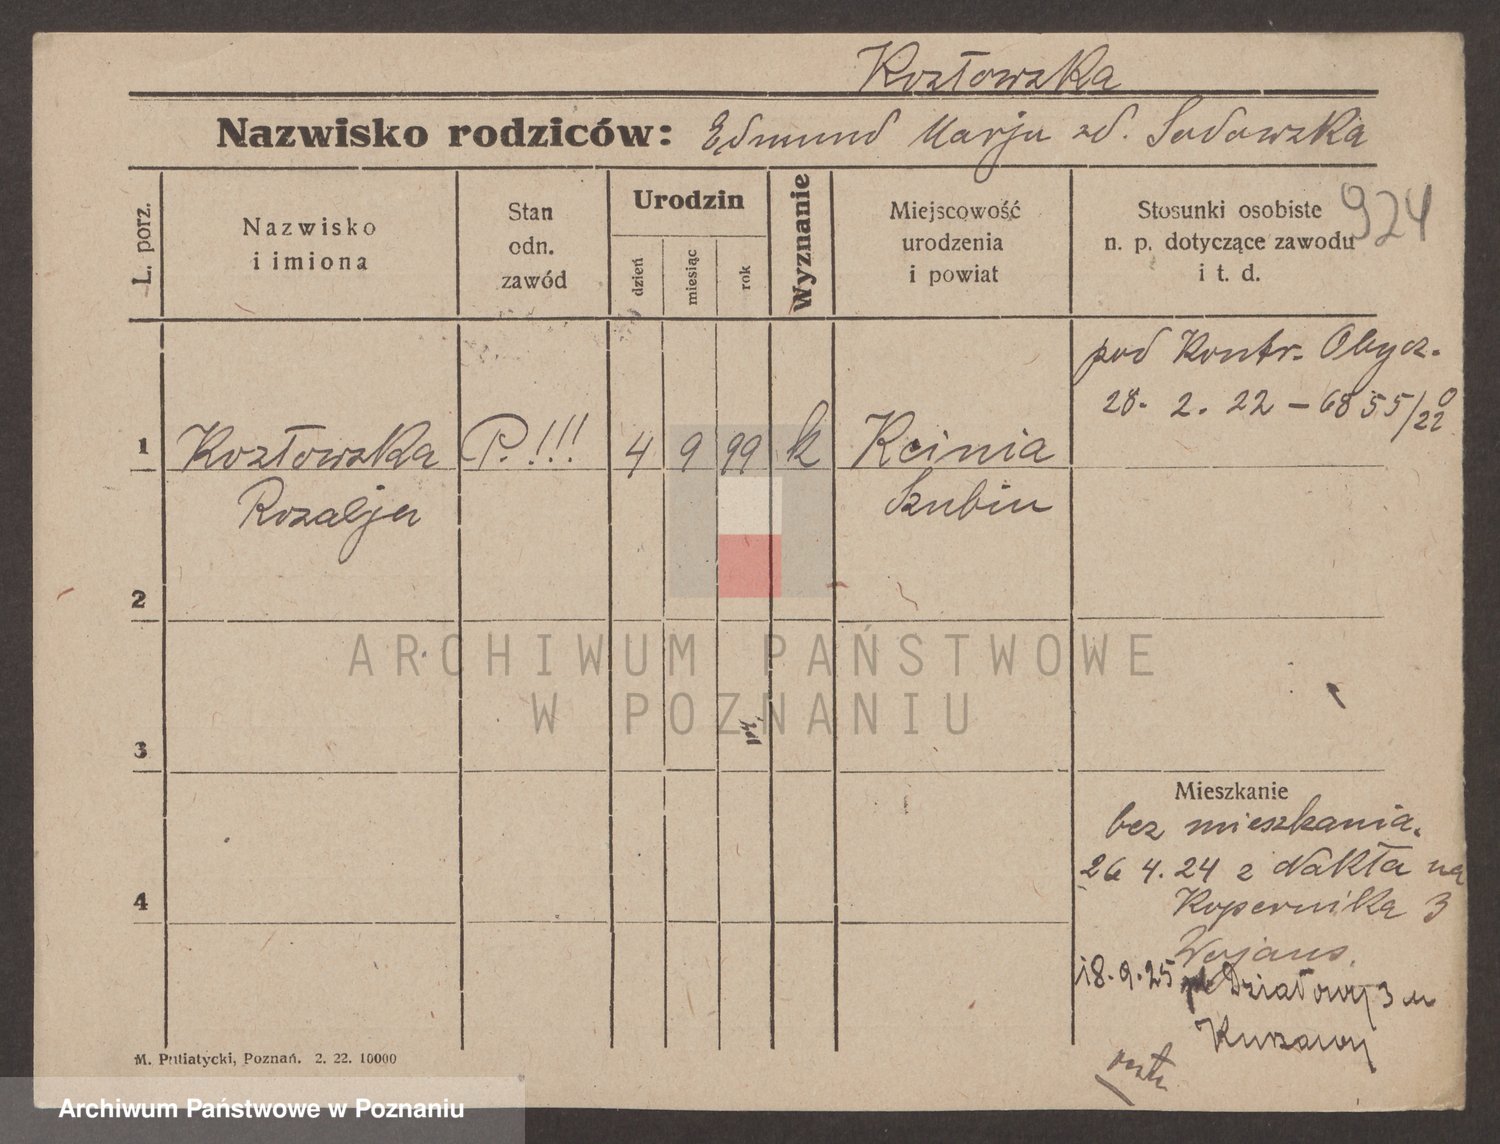 Kozłowska
Nazwisko rodziców: Edmund Marja zd. Sadowska
924
L. porz.
Nazwisko i imiona
Stan odn. zawód
Urodzin
dzień
miesiąc
rok
Wyznanie
Miejscowość urodzenia i powiat
Stosunki osobiste n. p. dotyczące zawodu i t. d.
pod Kontr. Obycz.
28. 2. 22 – 6855/22
1 Kozłowska P. !!! 4 9 99 k Kcinia
Rozalja Szubin
2
3
4
Mieszkanie
bez mieszkania.
26 4. 24 z Nakła na
Kopernika 3
18. 9. 25 Działowy 3 u
M. Putiatycki, Poznań. 2. 22. 10000
ARCHIWUM PAŃSTWOWE
W POZNANIU
Archiwum Państwowe w Poznaniu